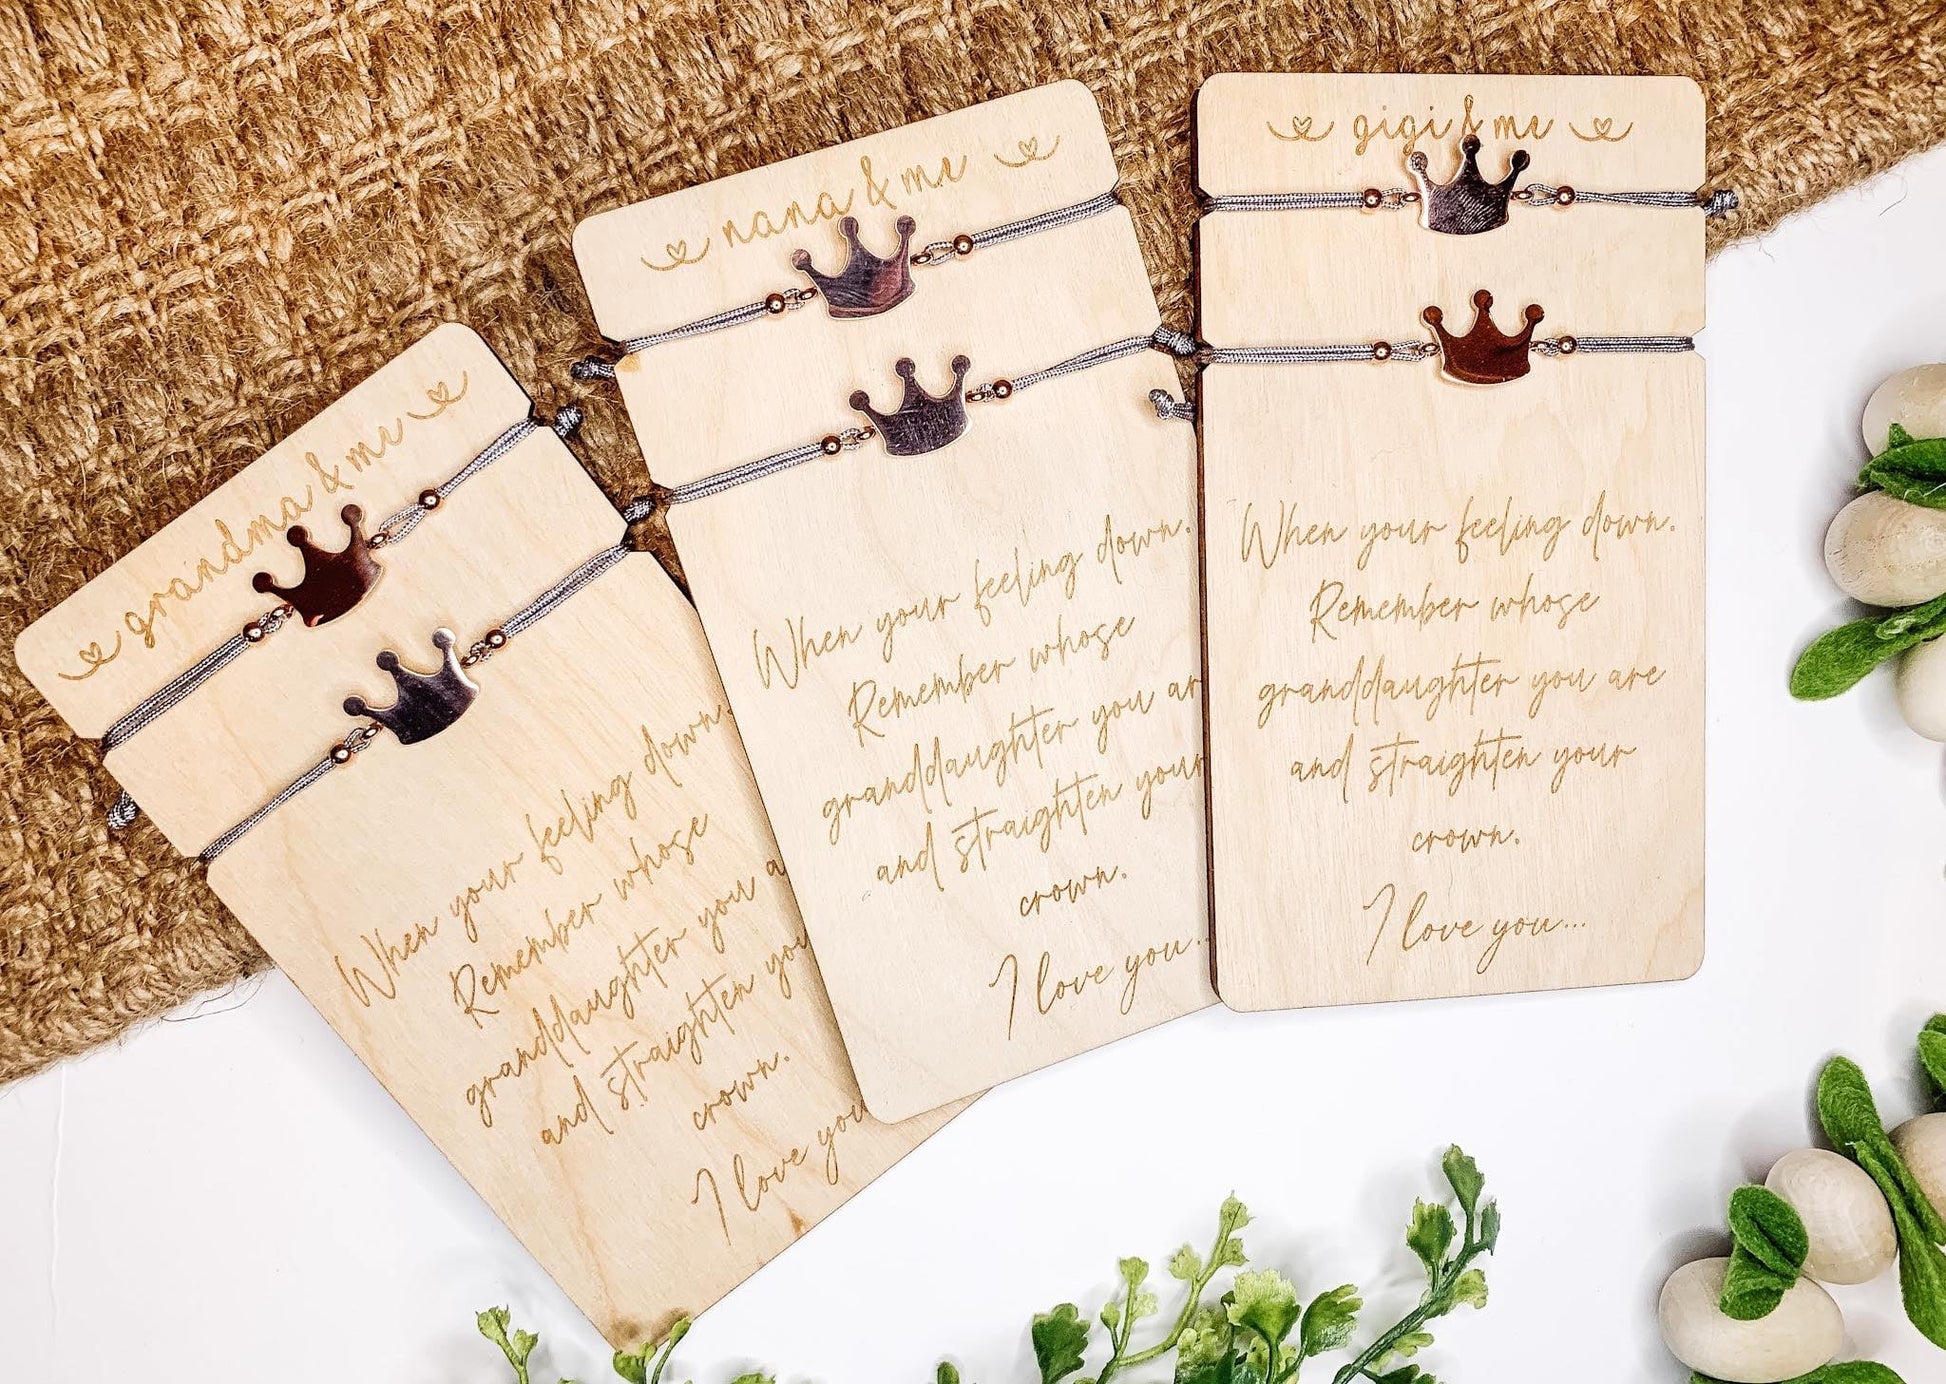 grandma & me
When your feeling down.
Remember whose
granddaughter you a
and straighten you
crown.
I love you
nana & me
When your feeling down.
Remember whose
granddaughter you ar
and straighten your
crown.
I love you..
gigi & me
When your feeling down.
Remember whose
granddaughter you are
and straighten your
crown.
I love you...